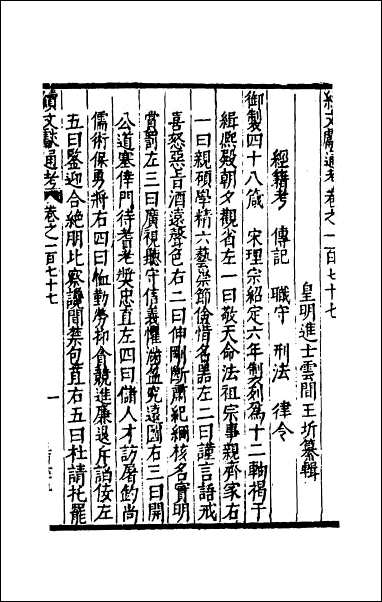 續文獻通考卷之一百七十七
皇明進士雲間王圻纂輯
經籍考 傳記 職守 刑法 律令
御製四十八箴 宋理宗紹定六年製列爲十二軸揭于
緝熙殿朝夕觀省左一曰敬天命法祖宗事親齊家右
一曰親碩學精六藝崇節儉惜名器左二曰謹言語戒
喜怒惡旨酒遠聲色右二曰伸剛斷肅紀綱核名實明
賞罰左三曰廣視聽守信義懼滿盈究遠圖右三曰開
公道塞倖門待耆老奬忠直左四曰儲人才訪屠釣尚
儒術保勇將右四曰恤勤勞抑貪競進廉退斥諂佞左
五曰鑒迎合絶朋比察讒間禁包苴右五曰杜請托罷
續文獻通考 卷之一百七十七
一